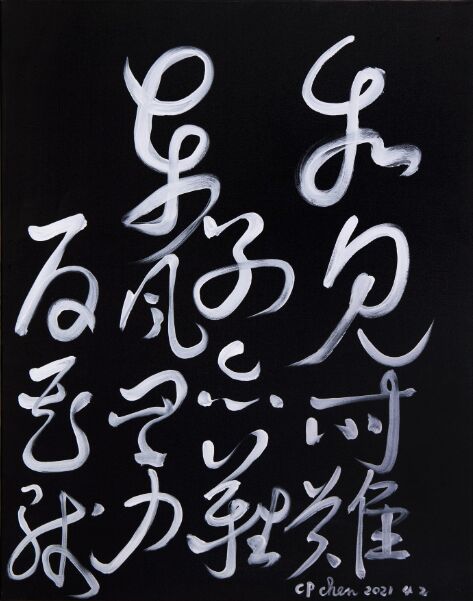 相見時難
別亦難
東風無力
百花殘
CP chen 2021 4.2